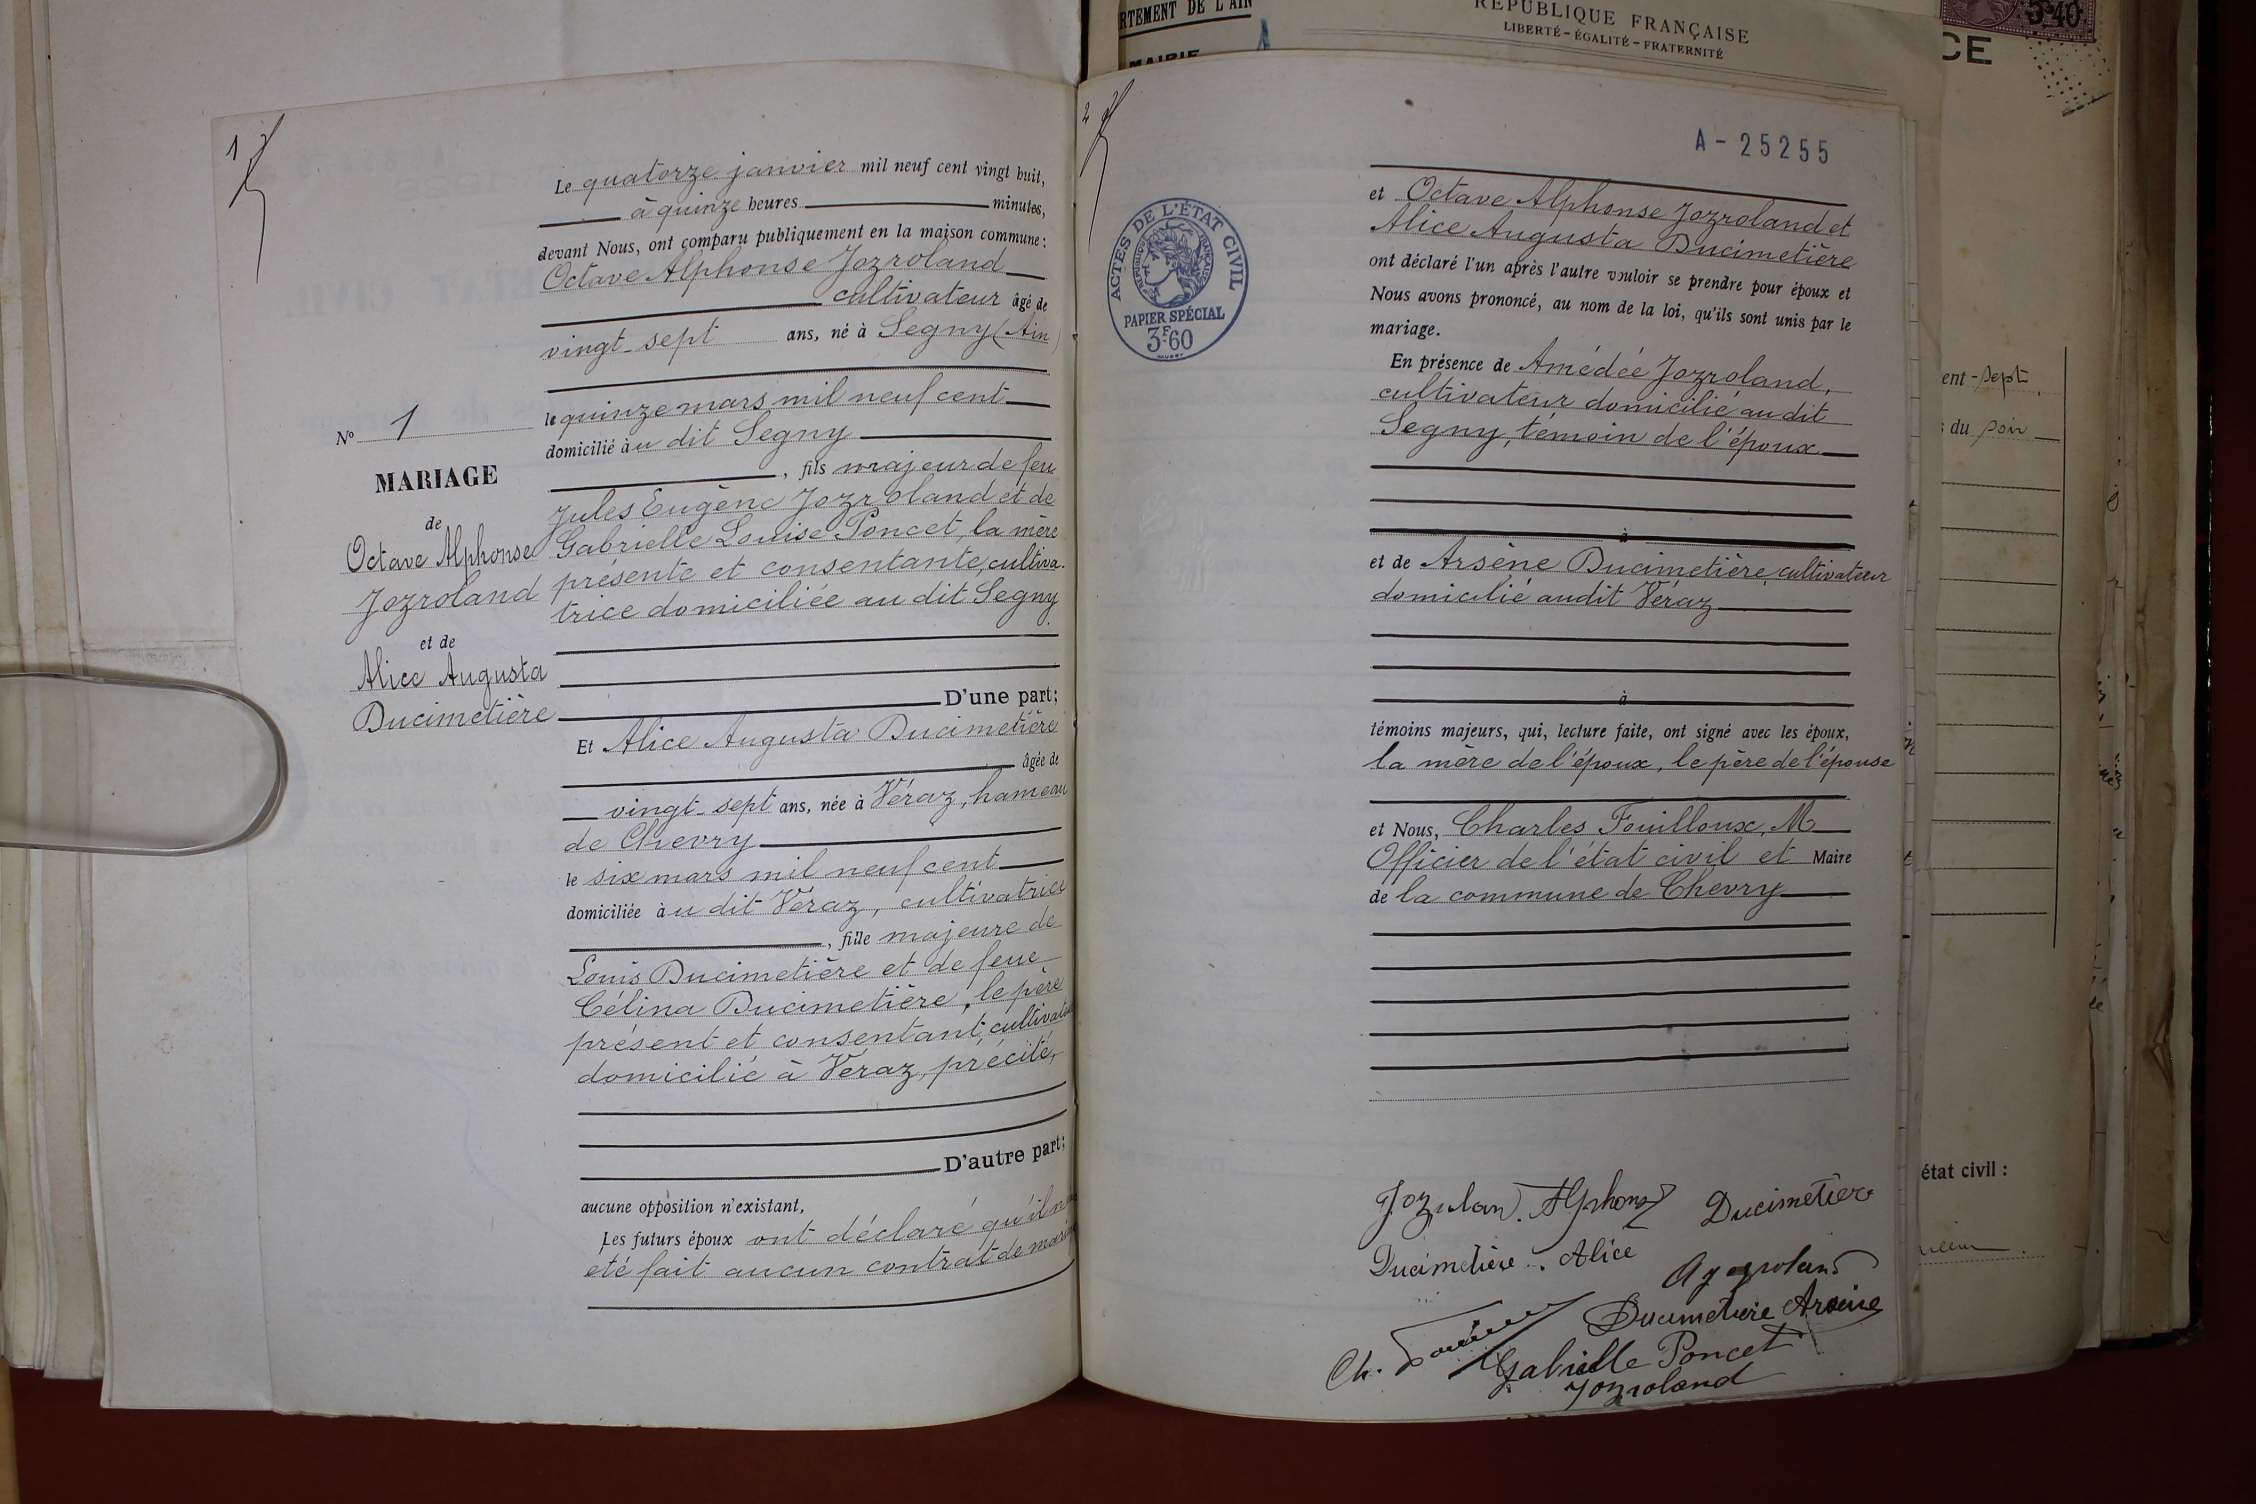 1
Le quatorze janvier mil neuf cent vingt huit,
à quinze heures minutes,
devant Nous, ont comparu publiquement en la maison commune :
Octave Alphonse Jozroland
cultivateur âgé de
vingt-sept ans, né à Segny (Ain)
le quinze mars mil neuf cent
domicilié àu dit Segny
, fils majeur de feu
Jules Eugène Jozroland et de
Gabrielle Louise Poncet, la mère
présente et consentante, cultiva-
trice domiciliée au dit Segny.
D'une part;
Et Alice Augusta Ducimetière
âgée de
vingt-sept ans, née à Véraz, hameau
de Chevry
le six mars mil neuf cent
domiciliée àu dit Véraz, cultivatrice
, fille majeure de
Louis Ducimetière et de feue
Célina Ducimetière, le père
présent et consentant, cultivateur
domicilié à Véraz, précité,
D'autre part;
aucune opposition n'existant,
Les futurs époux ont déclaré qu'il n'a
eté fait aucun contrat de mariage
No 1
MARIAGE
de
Octave Alphonse
Jozroland
et de
Alice Augusta
Ducimetière
2
A - 25255
ACTES DE L'ÉTAT CIVIL
RÉPUBLIQUE FRANÇAISE
PAPIER SPÉCIAL
3F60
et Octave Alphonse Jozroland et
Alice Augusta Ducimetière
ont déclaré l'un après l'autre vouloir se prendre pour époux et
Nous avons prononcé, au nom de la loi, qu'ils sont unis par le
mariage.
En présence de Amédée Jozroland,
cultivateur domicilié au dit
Segny, témoin de l'époux.
à
et de Arsène Ducimetière, cultivateur
domicilié audit Véraz
à
témoins majeurs, qui, lecture faite, ont signé avec les époux,
la mère de l'époux, le père de l'épouse
et Nous, Charles Fouilloux, M
Officier de l'état civil et Maire
de la commune de Chevry
Jozrolan. Alphonse Ducimetière
Ducimetière. Alice
A Jozroland
Ducimetière Arsène
Ch. Fouilloux
Gabrielle Poncet
Jozroland
RTEMENT DE L'AIN
MAIRIE
RÉPUBLIQUE FRANÇAISE
LIBERTÉ - ÉGALITÉ - FRATERNITÉ
5F40
CE
ent-sept
du soir
état civil :